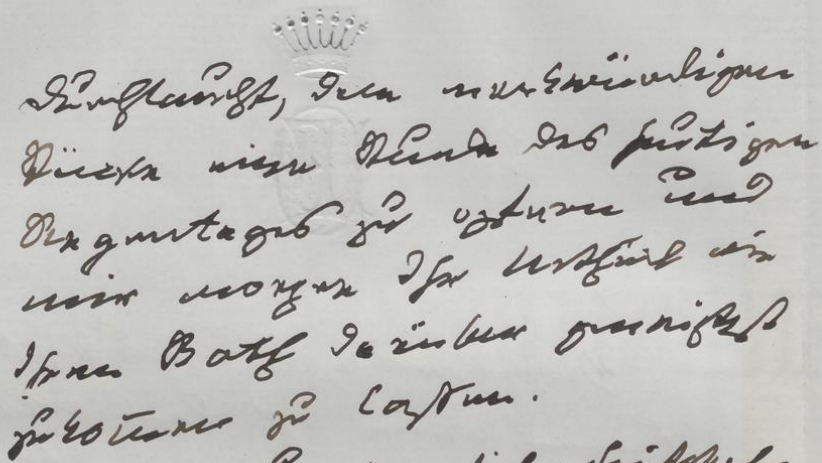 Durchlaucht, dem merkwürdigen
Stücke eine Stunde des heutigen
Regentages zu opfern und
mir morgen Ihr Urtheil wie
Ihren Rath darüber geneigtest
zukommen zu lassen.